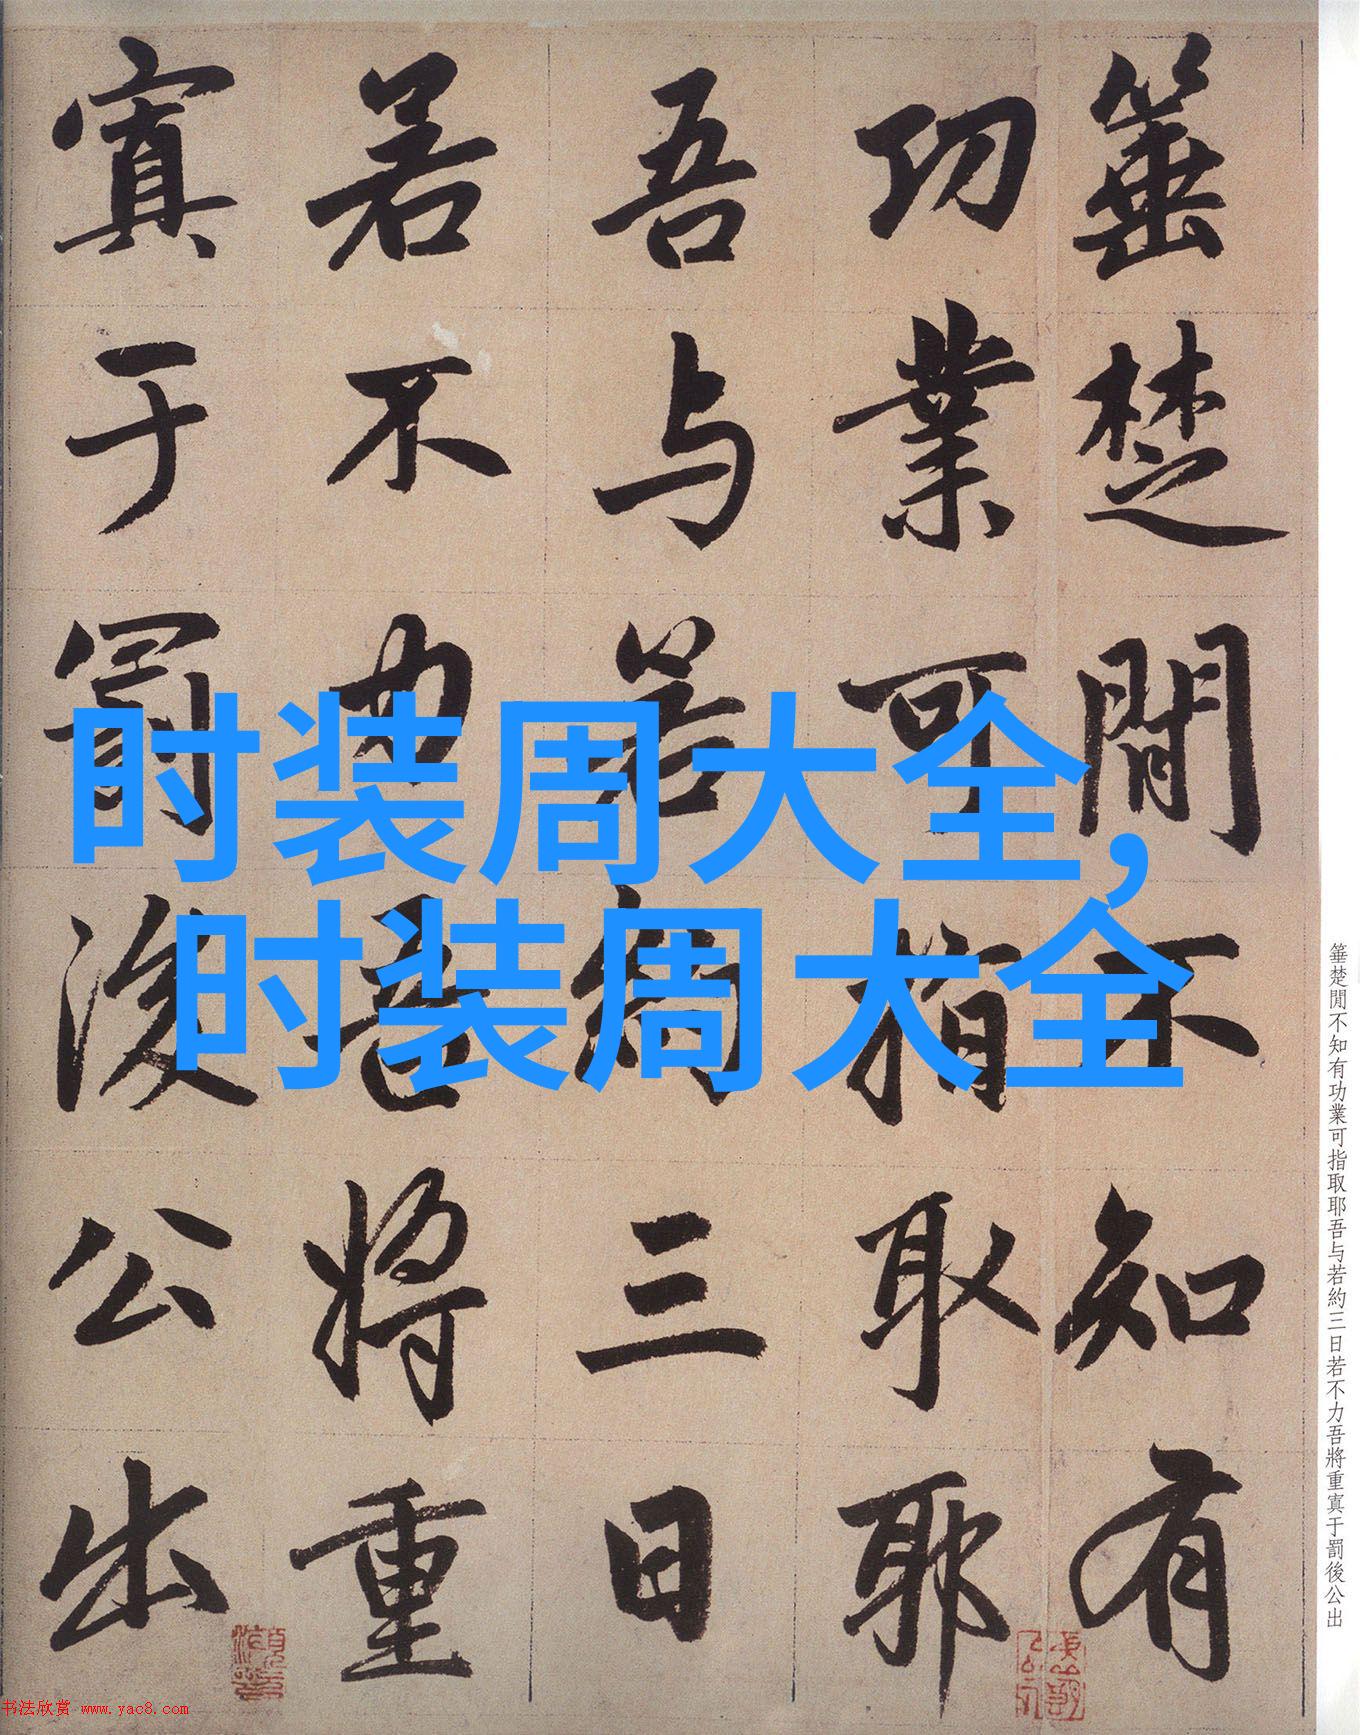 箠楚間不知有
功業可指取耶
吾与若約三日
若不力吾將重
寘于罰後公出
时装周大全,
时装周大全
箠楚閒不知有功業可指取耶吾与若約三日若不力吾將重寘于罰後公出
书法欣赏 www.yac8.com